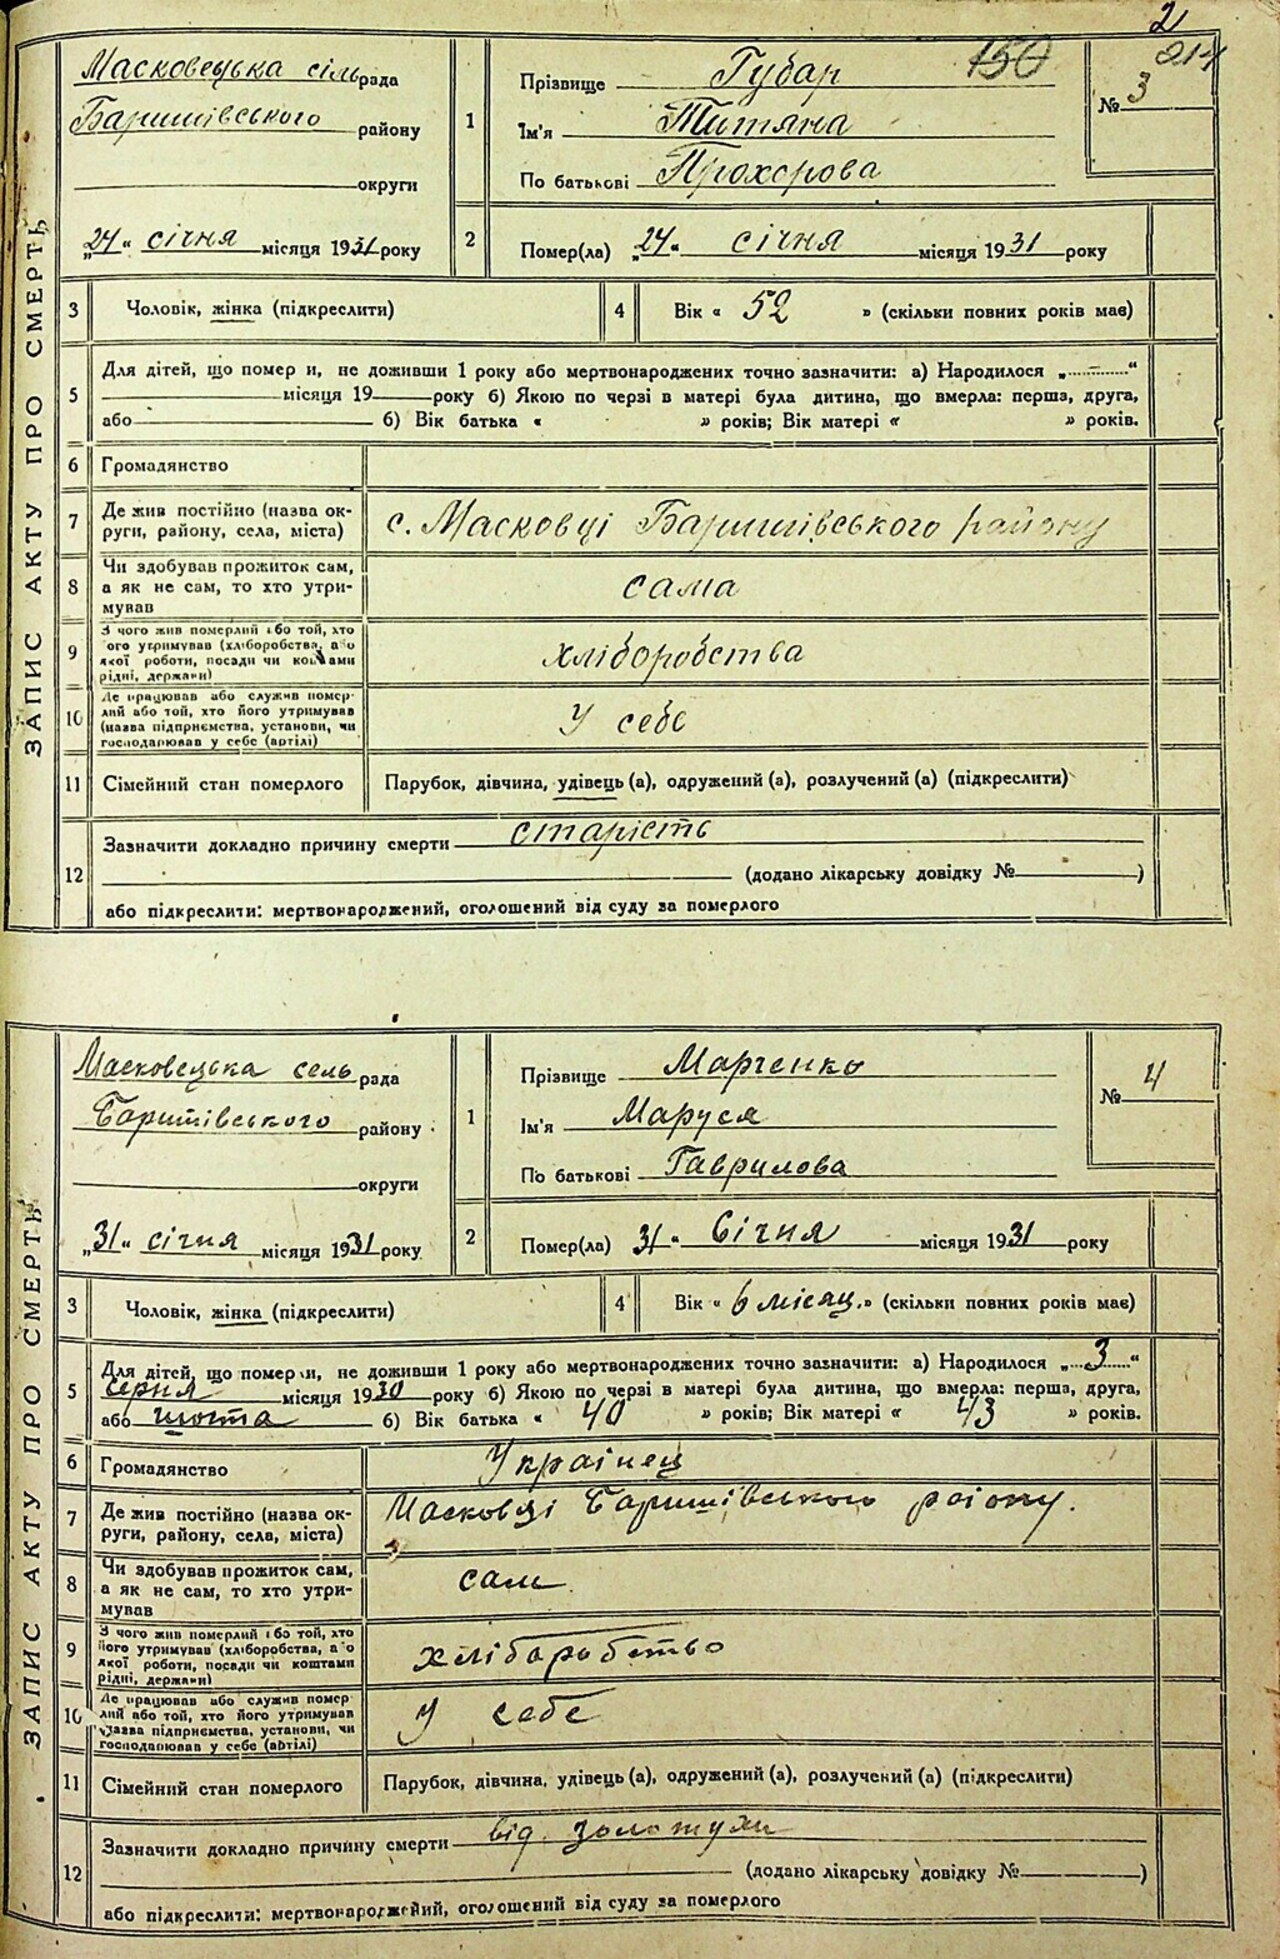 2
214
ЗАПИС АКТУ ПРО СМЕРТЬ
Масковецька сільрада
Баришівського району
округи
„24“ січня місяця 1931 року
1
Прізвище Губар 150
Ім'я Титяна
По батькові Прохорова
№ 3
2
Помер(ла) „24“ січня місяця 1931 року
3 Чоловік, жінка (підкреслити)
4 Вік « 52 » (скільки повних років має)
5
Для дітей, що помер и, не доживши 1 року або мертвонароджених точно зазначити: а) Народилося „ “
місяця 19 року б) Якою по черзі в матері була дитина, що вмерла: перша, друга,
або б) Вік батька « » років; Вік матері « » років.
6 Громадянство
7 Де жив постійно (назва ок-
руги, району, села, міста)
с. Масковці Баришівського району
8 Чи здобував прожиток сам,
а як не сам, то хто утри-
мував
сама
9 З чого жив померлий або той, хто
ого утримував (хліборобства, або
якої роботи, посади чи коштами
рідні, держави)
хліборобства
10 Де працював або служив помер-
лий або той, хто його утримував
(назва підприємства, установи, чи
господарював у себе (артілі)
У себе
11 Сімейний стан померлого
Парубок, дівчина, удівець (а), одружений (а), розлучений (а) (підкреслити)
12
Зазначити докладно причину смерти старість
(додано лікарську довідку № )
або підкреслити: мертвонароджений, оголошений від суду за померлого
ЗАПИС АКТУ ПРО СМЕРТЬ
Масковецька сель рада
Баришівського району
округи
„31“ січня місяця 1931 року
1
Прізвище Марченко
Ім'я Маруся
По батькові Гаврилова
№ 4
2
Помер(ла) 31“ Січня місяця 1931 року
3 Чоловік, жінка (підкреслити)
4 Вік « 6 місяц. » (скільки повних років має)
5
Для дітей, що помер и, не доживши 1 року або мертвонароджених точно зазначити: а) Народилося „ 3 “
серпя місяця 1930 року б) Якою по черзі в матері була дитина, що вмерла: перша, друга,
або шоста б) Вік батька « 40 » років; Вік матері « 43 » років.
6 Громадянство
Українец
7 Де жив постійно (назва ок-
руги, району, села, міста)
Масковці Баришівського раіону.
8 Чи здобував прожиток сам,
а як не сам, то хто утри-
мував
сам
9 З чого жив померлий або той, хто
його утримував (хліборобства, або
якої роботи, посади чи коштами
рідні, держави)
хліборобство
10 Де працював або служив помер
лий або той, хто його утримував
(назва підприємства, установи, чи
господарював у себе (артілі)
У себе
11 Сімейний стан померлого
Парубок, дівчина, удівець (а), одружений (а), розлучений (а) (підкреслити)
12
Зазначити докладно причину смерти від золотухи
(додано лікарську довідку № )
або підкреслити: мертвонароджений, оголошений від суду за померлого